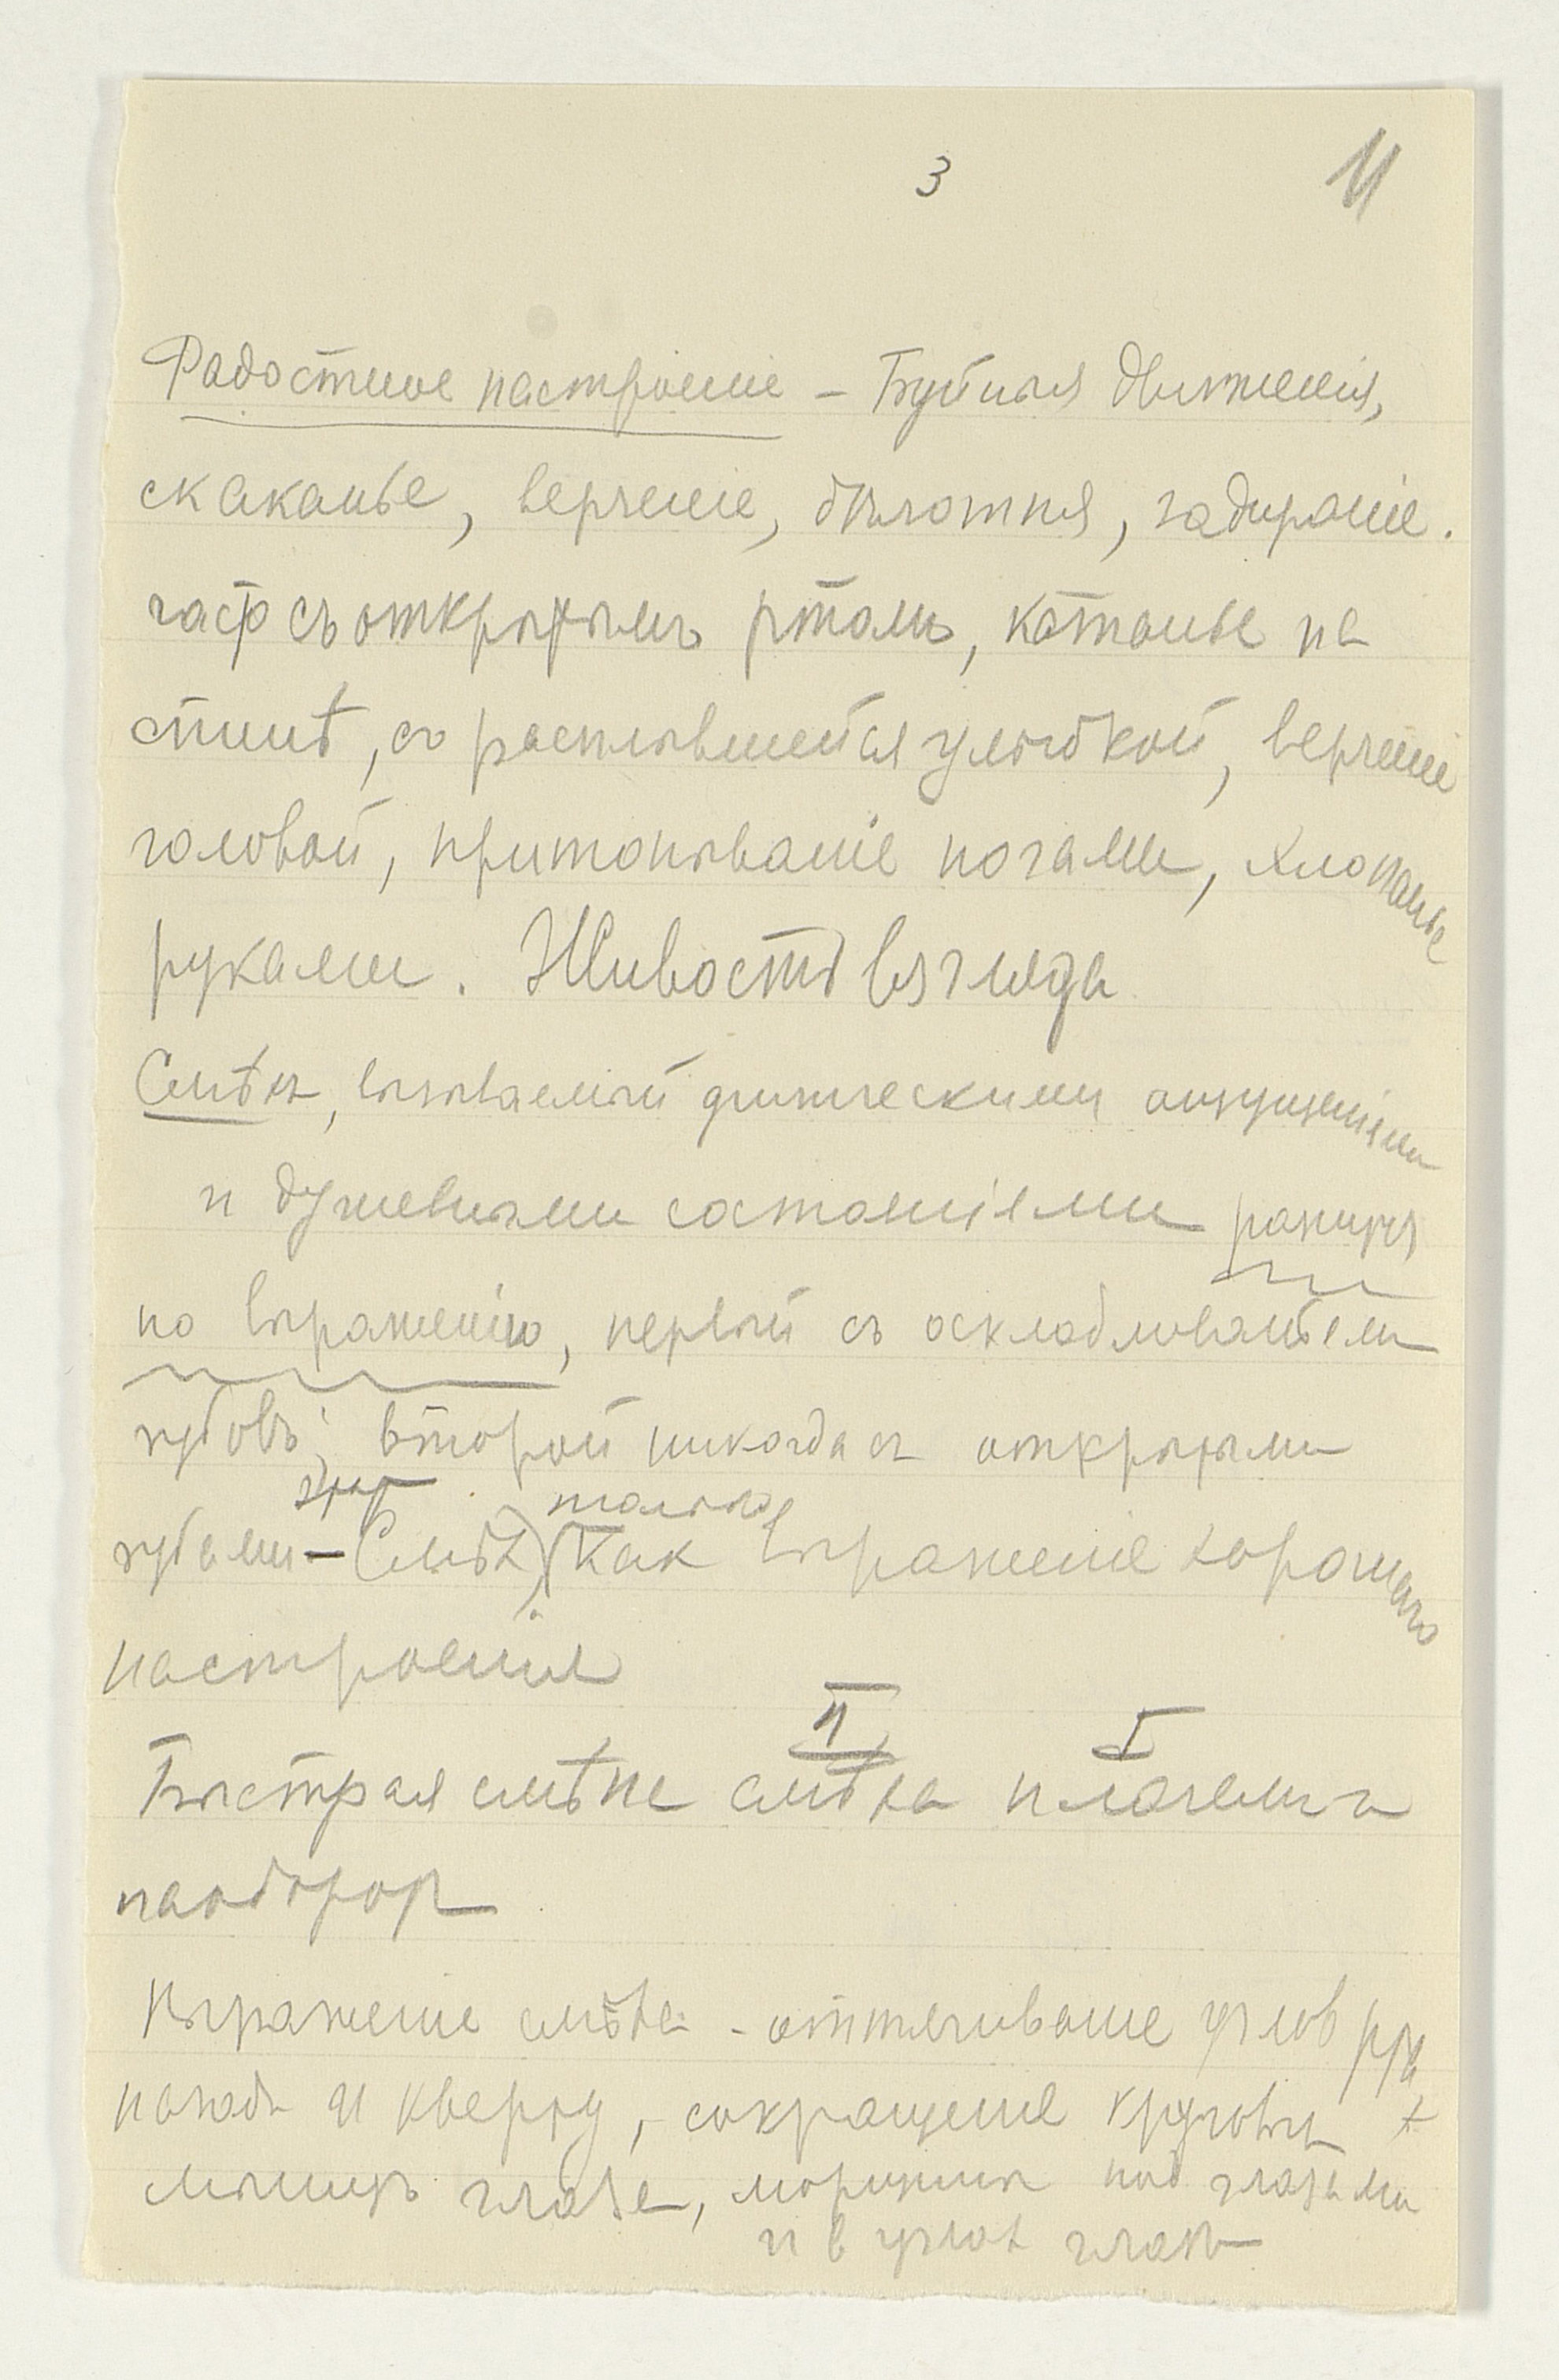 3
11
Радостное настроеніе – Буйныя движенія,
скаканье, верченіе, бѣготня, задираніе.
часто съ открытымъ ртомъ, катанье на
спинѣ, съ расплывшейся улыбкой, верченіе
головой, притопываніе ногами, хлопанье
руками. Живость взгляда
Смѣхъ, вызываемый физическими ощущеніями
и душевными состояніями разнится
по выраженію, первый съ оскладливаньемъ
зубовъ; второй никогда съ открытыми
только
губами – Смѣхъ) (Как выраженіе хорошаго
настроенія
II I
Быстрая смѣна смѣха плачемъ и
наоборотъ
Выраженіе смѣха - оттягиваніе углов рта
назадъ и кверху, сокращеніе круговых
мышцъ глаза, морщины под глазами
и в углах глазъ